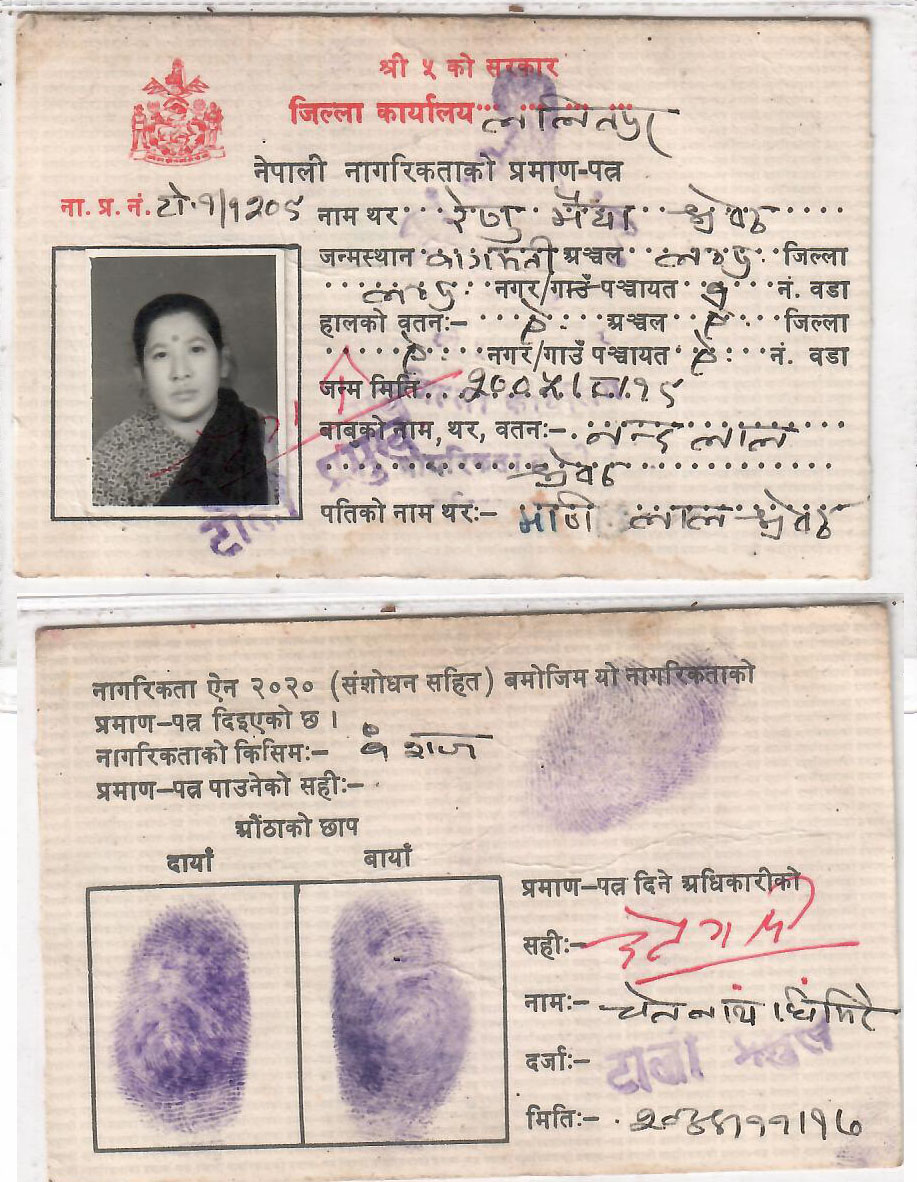 श्री ५ को सरकार
जिल्ला कार्यालय ललितपुर
नेपाली नागरिकताको प्रमाण-पत्र
ना. प्र. नं. टो-१/१२०९ नाम थर रेणु मैया श्रेष्ठ
जन्मस्थान बागमती अञ्चल ल॰पु॰ जिल्ला
ल॰पु॰ नगर/गाउँ पञ्चायत नं. वडा
हालको वतनः- ऐ अञ्चल ऐ जिल्ला
ऐ नगर/गाउँ पञ्चायत ऐ नं. वडा
जन्म मिति
बाबुको नाम, थर, वतनः- नन्द लाल
श्रेष्ठ
पतिको नाम थरः- लाल श्रेष्ठ
टोली प्रमुख
नागरिकता ऐन २०२० (संशोधन सहित) बमोजिम यो नागरिकताको
प्रमाण-पत्र दिइएको छ ।
नागरिकताको किसिमः- वंशज
प्रमाण-पत्र पाउनेको सहीः-
औंठाको छाप
दायाँ बायाँ
प्रमाण-पत्र दिने अधिकारीको
सहीः-
नामः- घिमिरे
दर्जाः- टोली प्रमुख
मितिः-